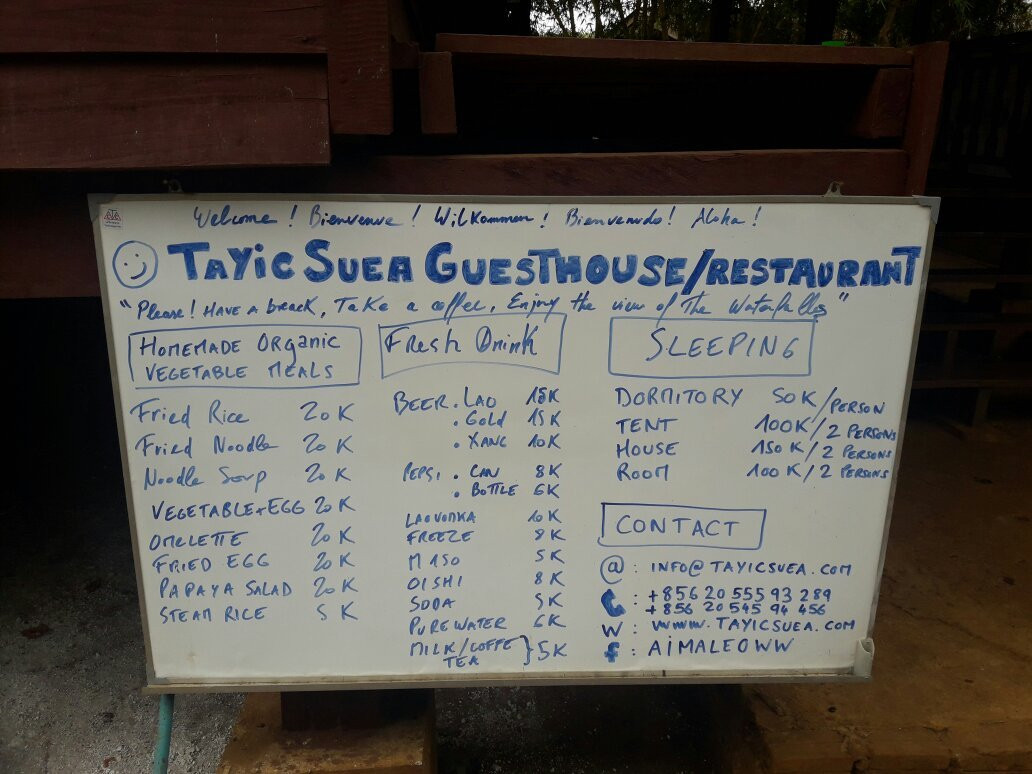 Welcome! Bienvenue! Wilkommen! Bienvenido! Aloha!
TAYIC SUEA GUESTHOUSE/RESTAURANT
"Please! HAVE A break, TAKE a coffee, Enjoy the view of The Waterfalls"
HOMEMADE ORGANIC
VEGETABLE MEALS
Fried Rice 20K
Fried Noodle 20K
Noodle Soup 20K
VEGETABLE+EGG 20K
OMELETTE 20K
FRIED EGG 20K
PAPAYA SALAD 20K
STEAM RICE 5K
Fresh Drink
BEER . LAO 15K
. GOLD 15K
. XANG 10K
PEPSI . CAN 8K
. BOTTLE 6K
LAOVODKA 10K
FREEZE 8K
5K
OISHI 8K
SODA 5K
PURE WATER 6K
MILK/COFFE
TEA } 5K
SLEEPING
DORMITORY 50K/PERSON
TENT 100K/2 PERSONS
HOUSE 150K/2 PERSONS
ROOM 100K/2 PERSONS
CONTACT
@ : INFO@TAYICSUEA.COM
: +856 20 555 93 289
+856 20 545 94 456
W : WWW.TAYICSUEA.COM
f : AIMALEOWW